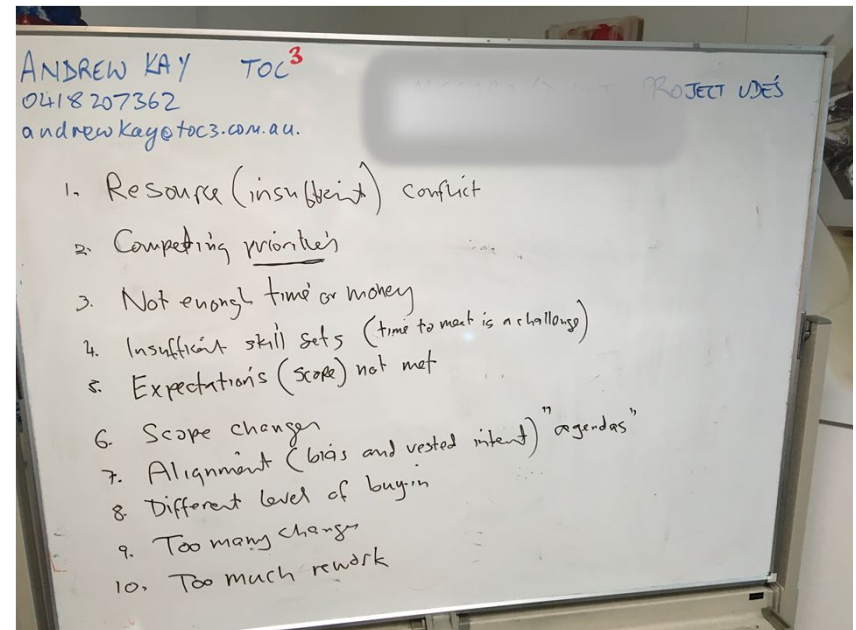 ANDREW KAY TOC³
0418 207362 PROJECT UDES
andrewkay@toc3.com.au.
1. Resource (insufficient) conflict
2. Competing priorities
3. Not enough time or money
4. Insufficient skill sets (time to meet is a challenge)
5. Expectations (scope) not met
6. Scope changes
7. Alignment (bias and vested intent) "agendas"
8. Different level of buy-in
9. Too many changes
10. Too much rework